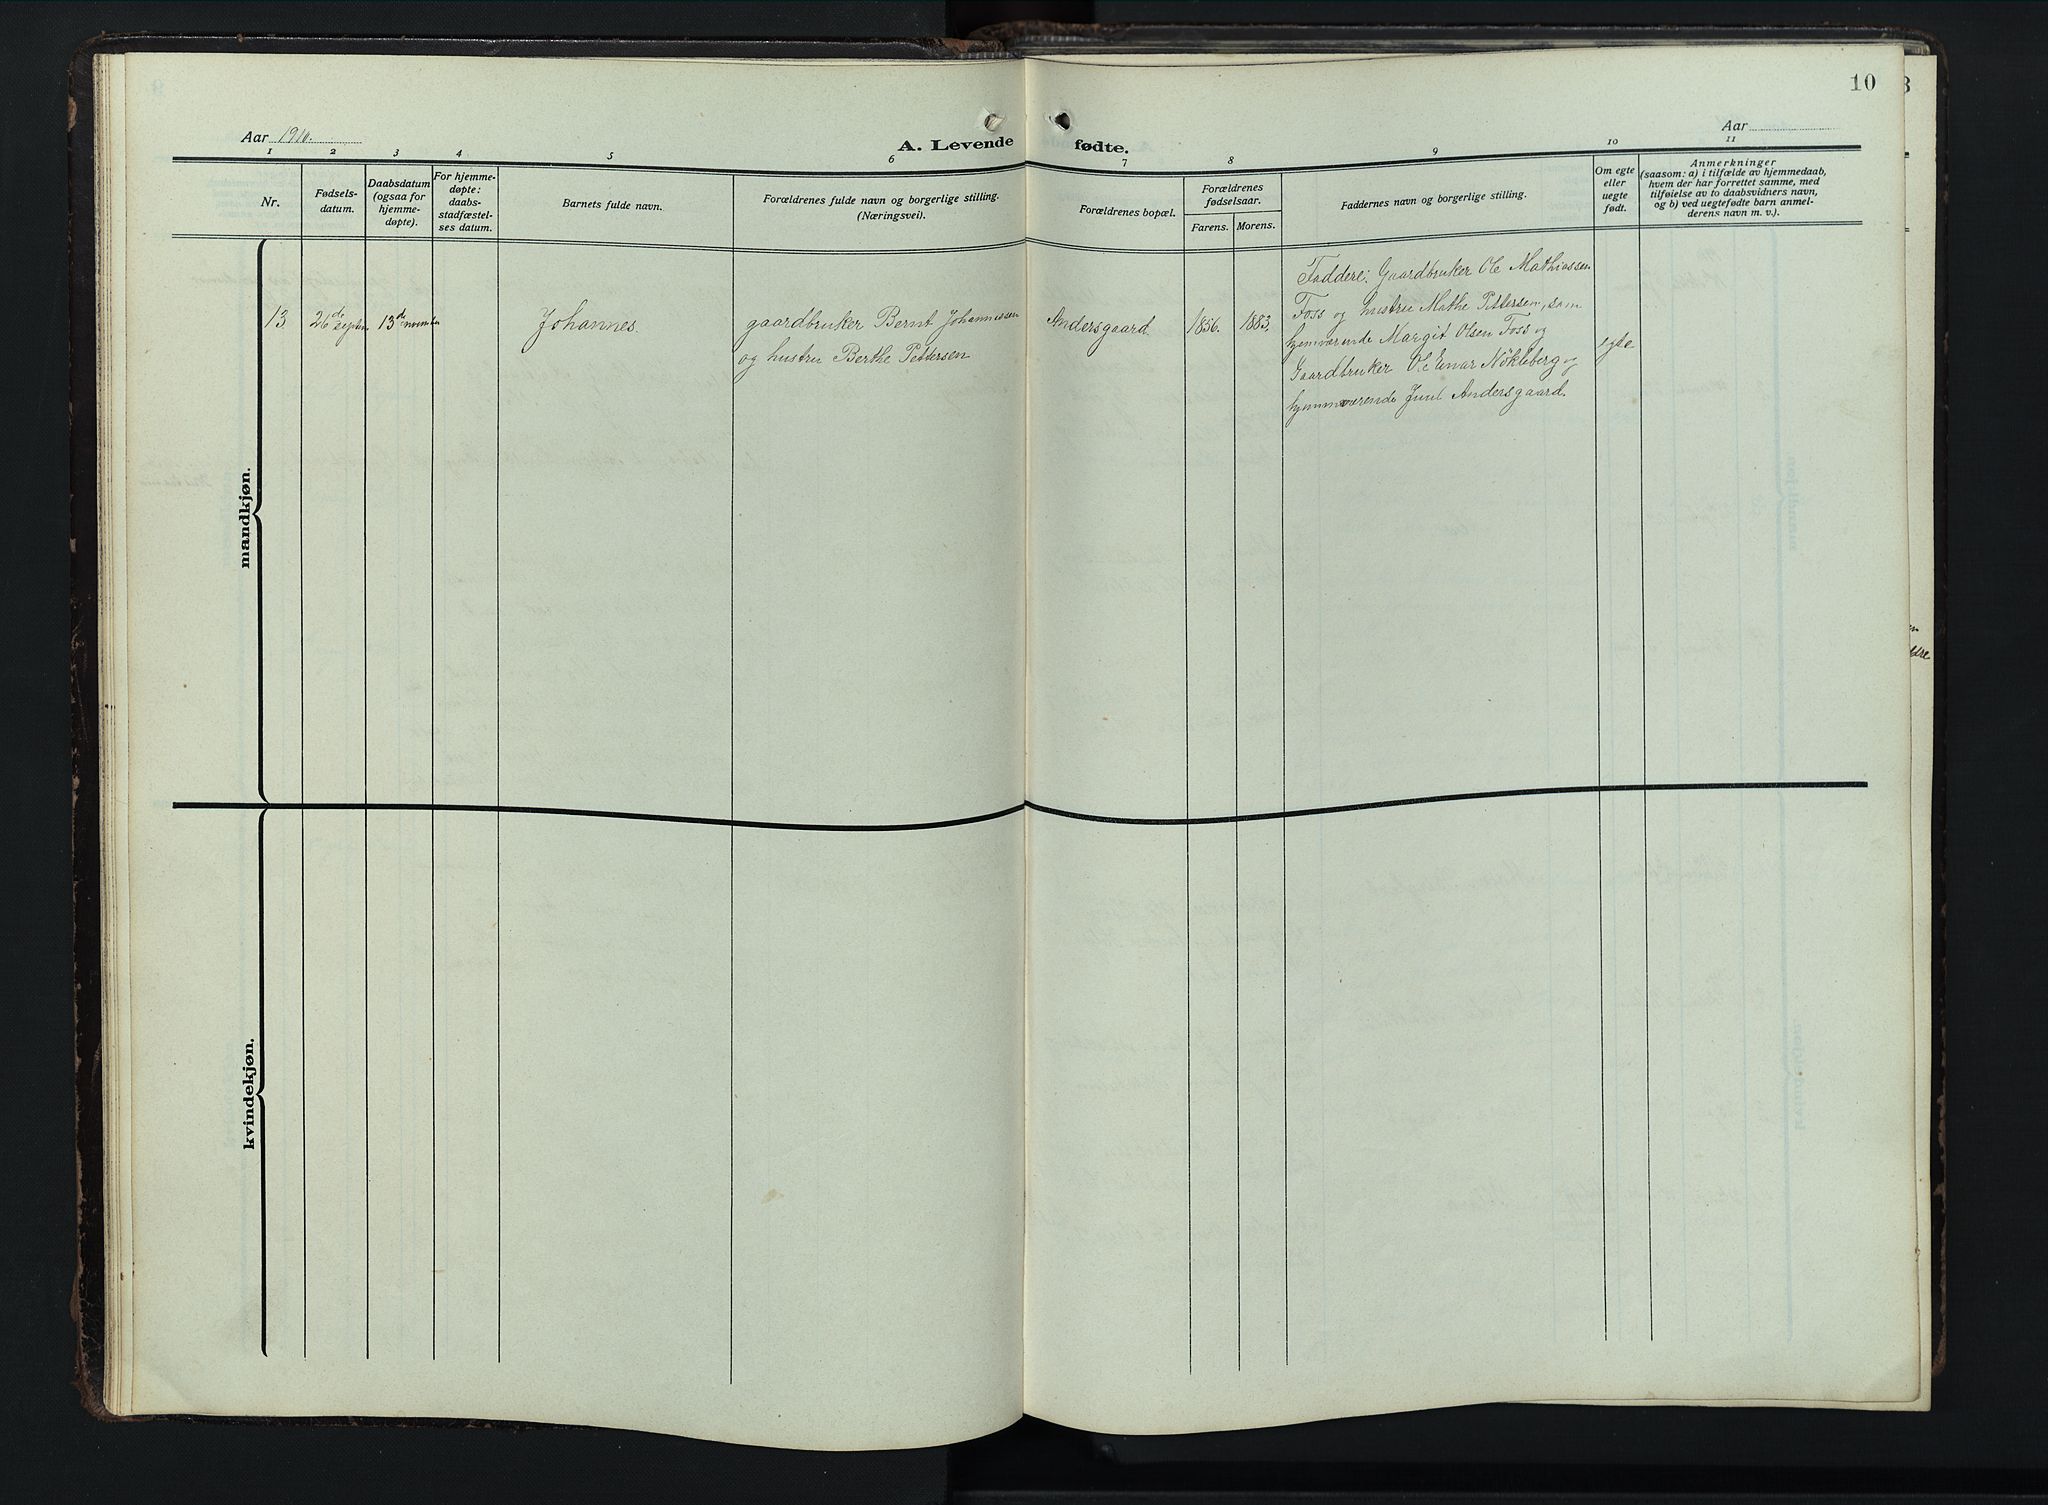 10
Aar 1910.
Aar
A. Levende fødte.
1 2 3 4 5 6 7 8 9 10 11
Nr.
Fødsels-
datum.
Daabsdatum
(ogsaa for
hjemme-
døpte).
For hjemme-
døpte:
daabs-
stadfæstel-
ses datum.
Barnets fulde navn.
Forældrenes fulde navn og borgerlige stilling.
(Næringsvei).
Forældrenes bopæl.
Forældrenes
fødselsaar.
Farens. Morens.
Faddernes navn og borgerlige stilling.
Om egte
eller
uegte
født.
Anmerkninger
(saasom: a) i tilfælde av hjemmedaab,
hvem der har forrettet samme, med
tilføielse av to daabsvidners navn,
og b) ved uegtefødte barn anmel-
derens navn m. v.).
mandkjøn.
13 26de septbr 13de november Johannes. gaardbruker Bernt Johannessen
og hustru Berthe Pettersen
Andersgaard. 1856. 1883.
Faddere: Gaardbruker Ole Mathiassen
Foss og hustru Mathe Pettersen, sam
hjemværende Margit Olsen Foss og
Gaardbruker Ole Einar Nökleberg og
hjemmværende Juul Andersgaard.
egte
kvindekjøn.